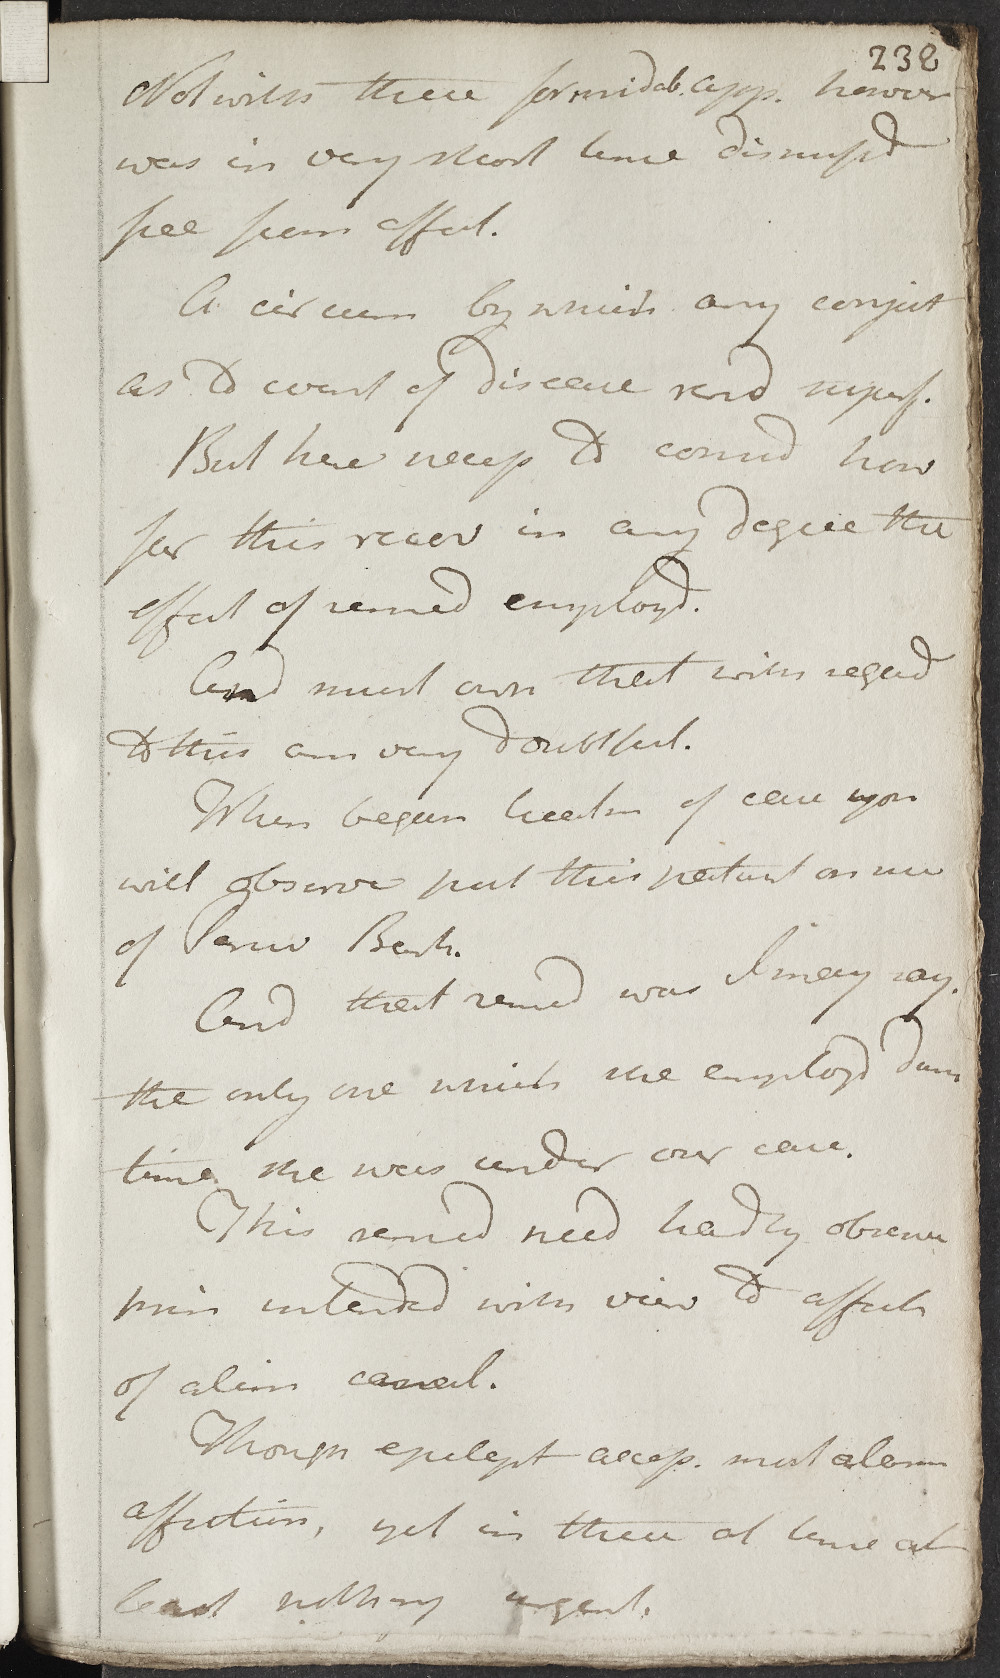 238
Notwith these formidab. app. however
was in very short time dismissd
free from affect.
A circum by which any conject
as to event of disease rend superf.
But here necess to consid how
far this recov in any degree the
effect of remed employd.
And must own that with regard
to this am very doubtful.
When began treatm of case you
will observe put this patient on use
of Peruv Bark.
And that remed was I may say.
the only one which she employd dur
time she was under our care.
This remed need hardly observe
prin intended with view to affect
of alim canal.
Though epilept access. most alarm
affection, yet in these at time at
least nothing urgent.